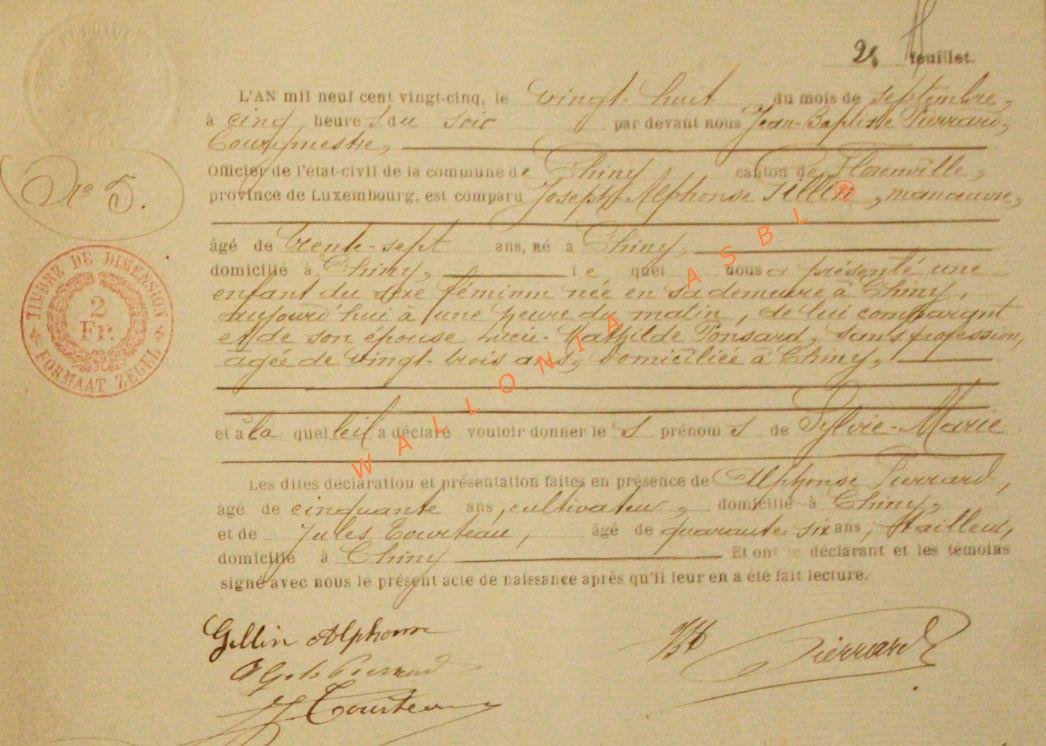 28 feuillet.
L'AN mil neuf cent vingt-cinq, le vingt-huit du mois de septembre,
à cinq heures du soir par devant nous Jean-Baptiste Pierrard,
Bourgmestre,
Officier de l'état-civil de la commune de Chiny canton de Florenville,
province de Luxembourg, est comparu Joseph Alphonse Gillin, manœuvre,
N° 5.
âgé de trente-sept ans, né à Chiny,
domicilié à Chiny, le quel nous a présenté une
enfant du sexe féminin née en sa demeure à Chiny,
aujourd'hui à une heure du matin, de lui comparant
et de son épouse Lucie-Mathilde Ponsard, sans profession,
âgée de vingt-trois ans, domiciliée à Chiny,
TIMBRE DE DIMENSION
2
Fr.
FORMAAT ZEGEL
et à la quelle il a déclaré vouloir donner les prénoms de Sylvie-Marie
Les dites déclaration et présentation faites en présence de Alphonse Pierrard,
âgé de cinquante ans, cultivateur, domicilié à Chiny,
et de Jules Tourteau, âgé de quarante six ans, tailleur,
domicilié à Chiny Et ont le déclarant et les témoins
signé avec nous le présent acte de naissance après qu'il leur en a été fait lecture.
Gillin Alphonse
Pierrard
J Tourteau
Pierrard
WALLONIA ASBL